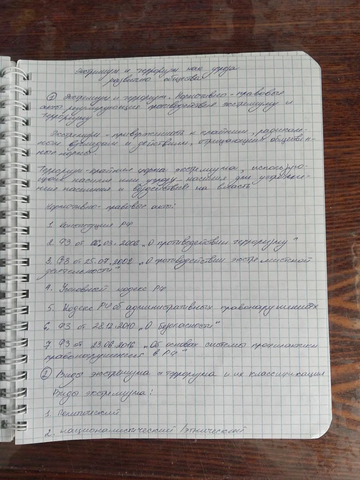 Экстремизм и терроризм как угроза
развитию общества
① Экстремизм и терроризм. Нормативно-правовые
акты регулирующие противодействия экстремизму и
терроризму
Экстремизм - приверженность к крайним, радикаль-
ным взглядам и действиям, отрицающим обществен-
ные нормы
Терроризм - крайняя форма экстремизма, использую-
щая насилие или угрозу насилия для устрашения
населения и воздействия на власть.
Нормативно-правовые акты:
1. Конституция РФ
2. ФЗ от 06.03.2006 "О противодействии терроризму"
3. ФЗ от 25.07.2002 "О противодействии экстремистской
деятельности"
4. Уголовный кодекс РФ
5. Кодекс РФ об административных правонарушениях
6. ФЗ от 28.12.2010 "О безопасности"
7. ФЗ от 23.06.2016 "Об основах системы профилактики
правонарушений в РФ"
② Виды экстремизма и терроризма и их классификация
Виды экстремизма:
1. Политический
2. Националистический / этнический